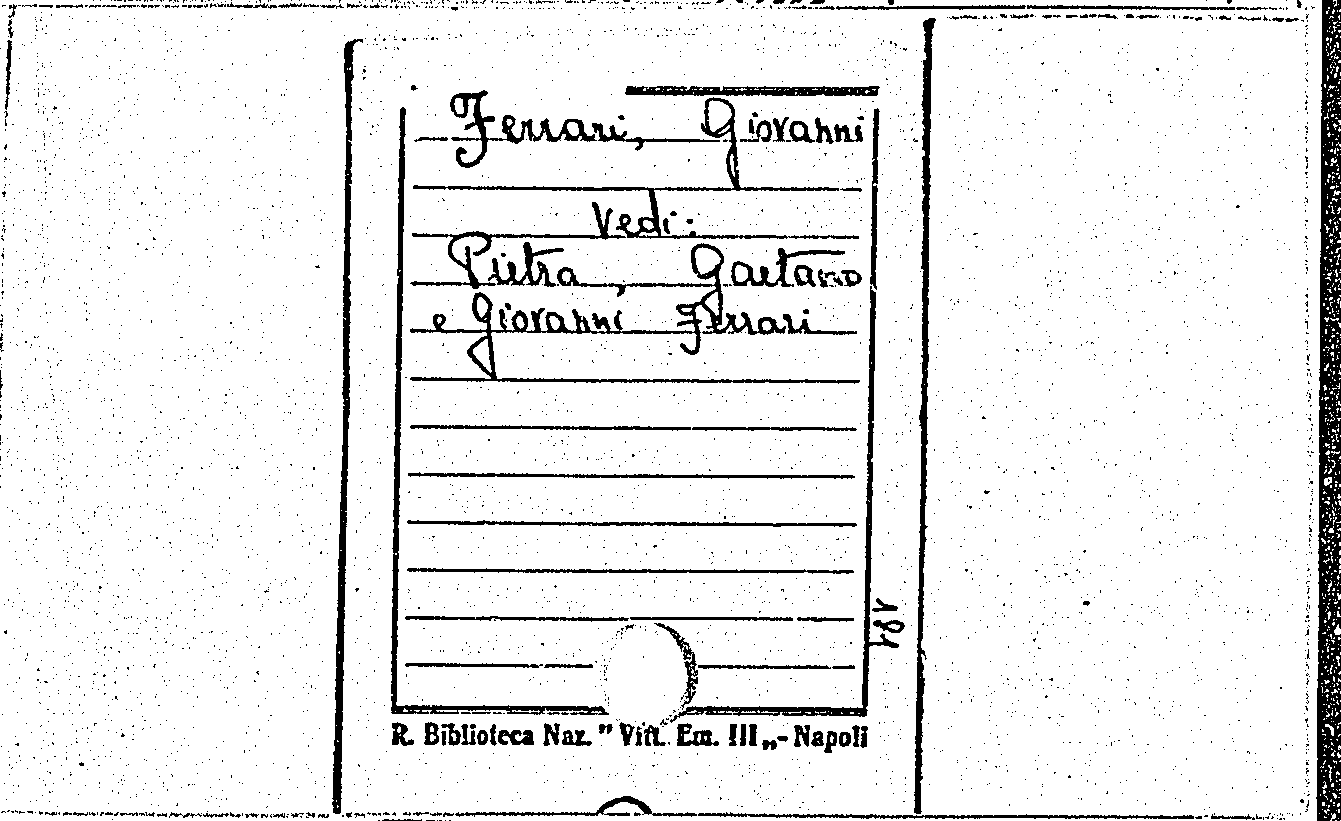 Ferrari, Giovanni
Vedi:
Pietra, Gaetano
e Giovanni Ferrari
181
R. Biblioteca Naz. " Vitt. Em. III „ - Napoli